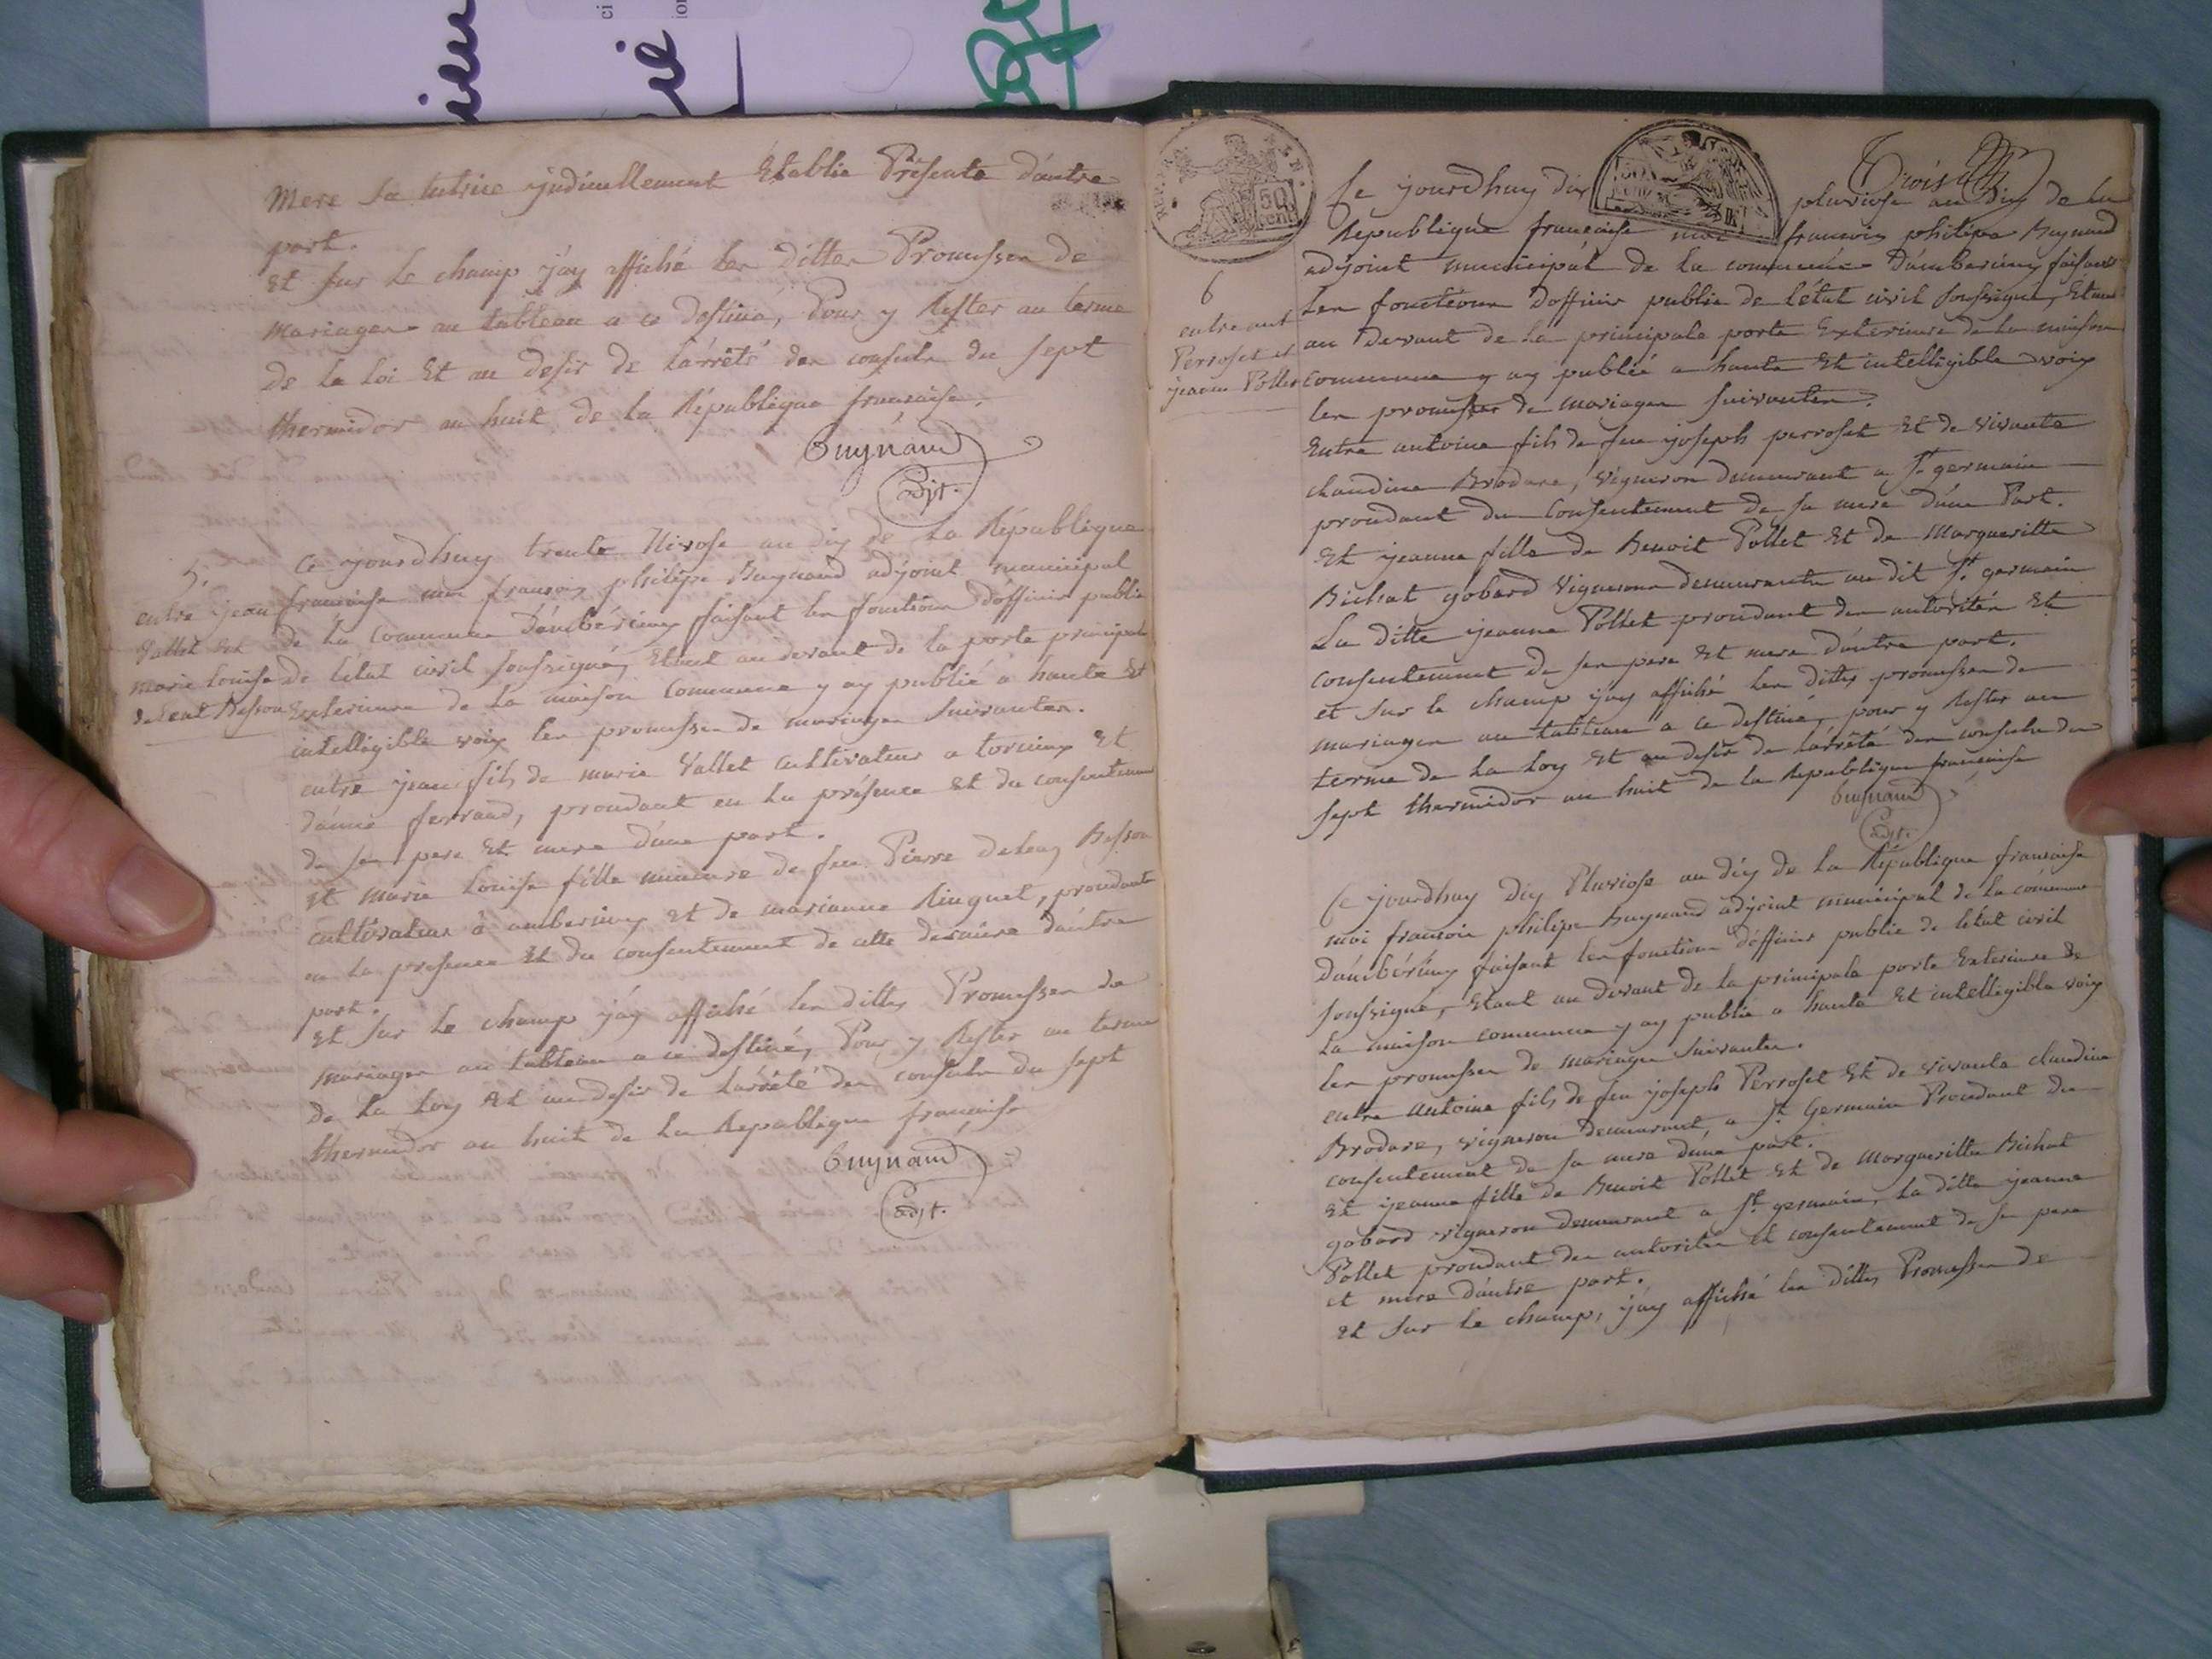 Mere sa tutrice judiciellement Etablie Présente d'autre
part.
Et sur le champ j'ay affiché les dittes Promesses de
mariages au tableau a ce destiné, Pour y Rester au terme
de la Loi Et au desir de l'arrêté des consuls du sept
thermidor an huit de la République francaise.
Buynand
adjt.
5.
entre jean
Vallet et
marie Louise
deleat Besson
Ce jourd'huy trente Nivose an dix de La République
francaise moi francois philipe Buynand adjoint municipal
de La Commune d'ambérieux faisant les fonctions d'officier public
de l'état civil soussigné, Etant au devant de la porte principale
Exterieure de La maison Commune y ay publié a haute Et
intelligible voix les promesses de mariages suivantes.
entre jean fils de marie Vallet cultivateur a torcieux Et
d'anne ferrand, procedant en La présence Et du consentement
de ses pere Et mere d'une part.
Et marie Louise fille mineure de feu Pierre deleaz Besson
cultivateur à amberieux Et de marianne Ringuet, procedant
en La presence Et du consentement de cette derniere d'autre
part.
Et sur Le champ j'ay affiché les dittes Promesses de
mariages au tableau a ce destiné, Pour y Rester au terme
de La Loy Et au desir de l'arrêté des consuls du sept
thermidor an huit de La Republique francaise
Buynand
adjt.
REP. FRA.
50 cent
Trois
6
entre ant
Perroset et
jeanne Pollet
Ce jourd'huy dix pluviose an dix de La
Republique francaise moi francois philipe Buynand
adjoint municipal de La commune d'amberieux faisant
les fonctions d'officier public de l'état civil soussigné, Etant
au devant de La principale porte Exterieure de La maison
commune y ay publié a haute Et intelligible voix
les promesses de mariages suivantes.
Entre antoine fils de feu joseph perroset Et de vivante
claudine Brodare, vigneron demeurant a St. germain
procedant du Consentement de sa mere d'une Part.
Et jeanne fille de Benoit Pollet Et de Margueritte
Bichat gobard vignerons demeurants au dit St. germain
La ditte jeanne Pollet procedant des autorités Et
consentement de ses pere Et mere d'autre part.
et sur le champ j'ay affiché les dittes promesses de
mariages au tableau a ce destiné, pour y Rester au
terme de La Loy Et au desir de l'arrêté des consuls du
sept thermidor an huit de la Republique francaise
Buynand
adjt.
Ce jourd'huy Dix Pluviose an dix de La République francaise
moi francois philipe Buynand adjoint municipal de La commune
d'ambérieux faisant les fonctions d'officier public de l'état civil
soussigné, Etant au devant de La principale porte Exterieure de
La maison commune y ay publié a haute Et intelligible voix
les promesses de mariages suivantes.
entre antoine fils de feu joseph Perroset Et de vivante claudine
Brodare, vigneron demeurant, a St. Germain Procedant du
consentement de sa mere d'une part.
Et jeanne fille de Benoit Pollet Et de Margueritte Bichat
gobard vigneron demeurant a St. germain, La ditte jeanne
Pollet procedant des autorités Et consentement de ses pere
et mere d'autre part.
Et sur le champ, j'ay affiché les dittes Promesses de